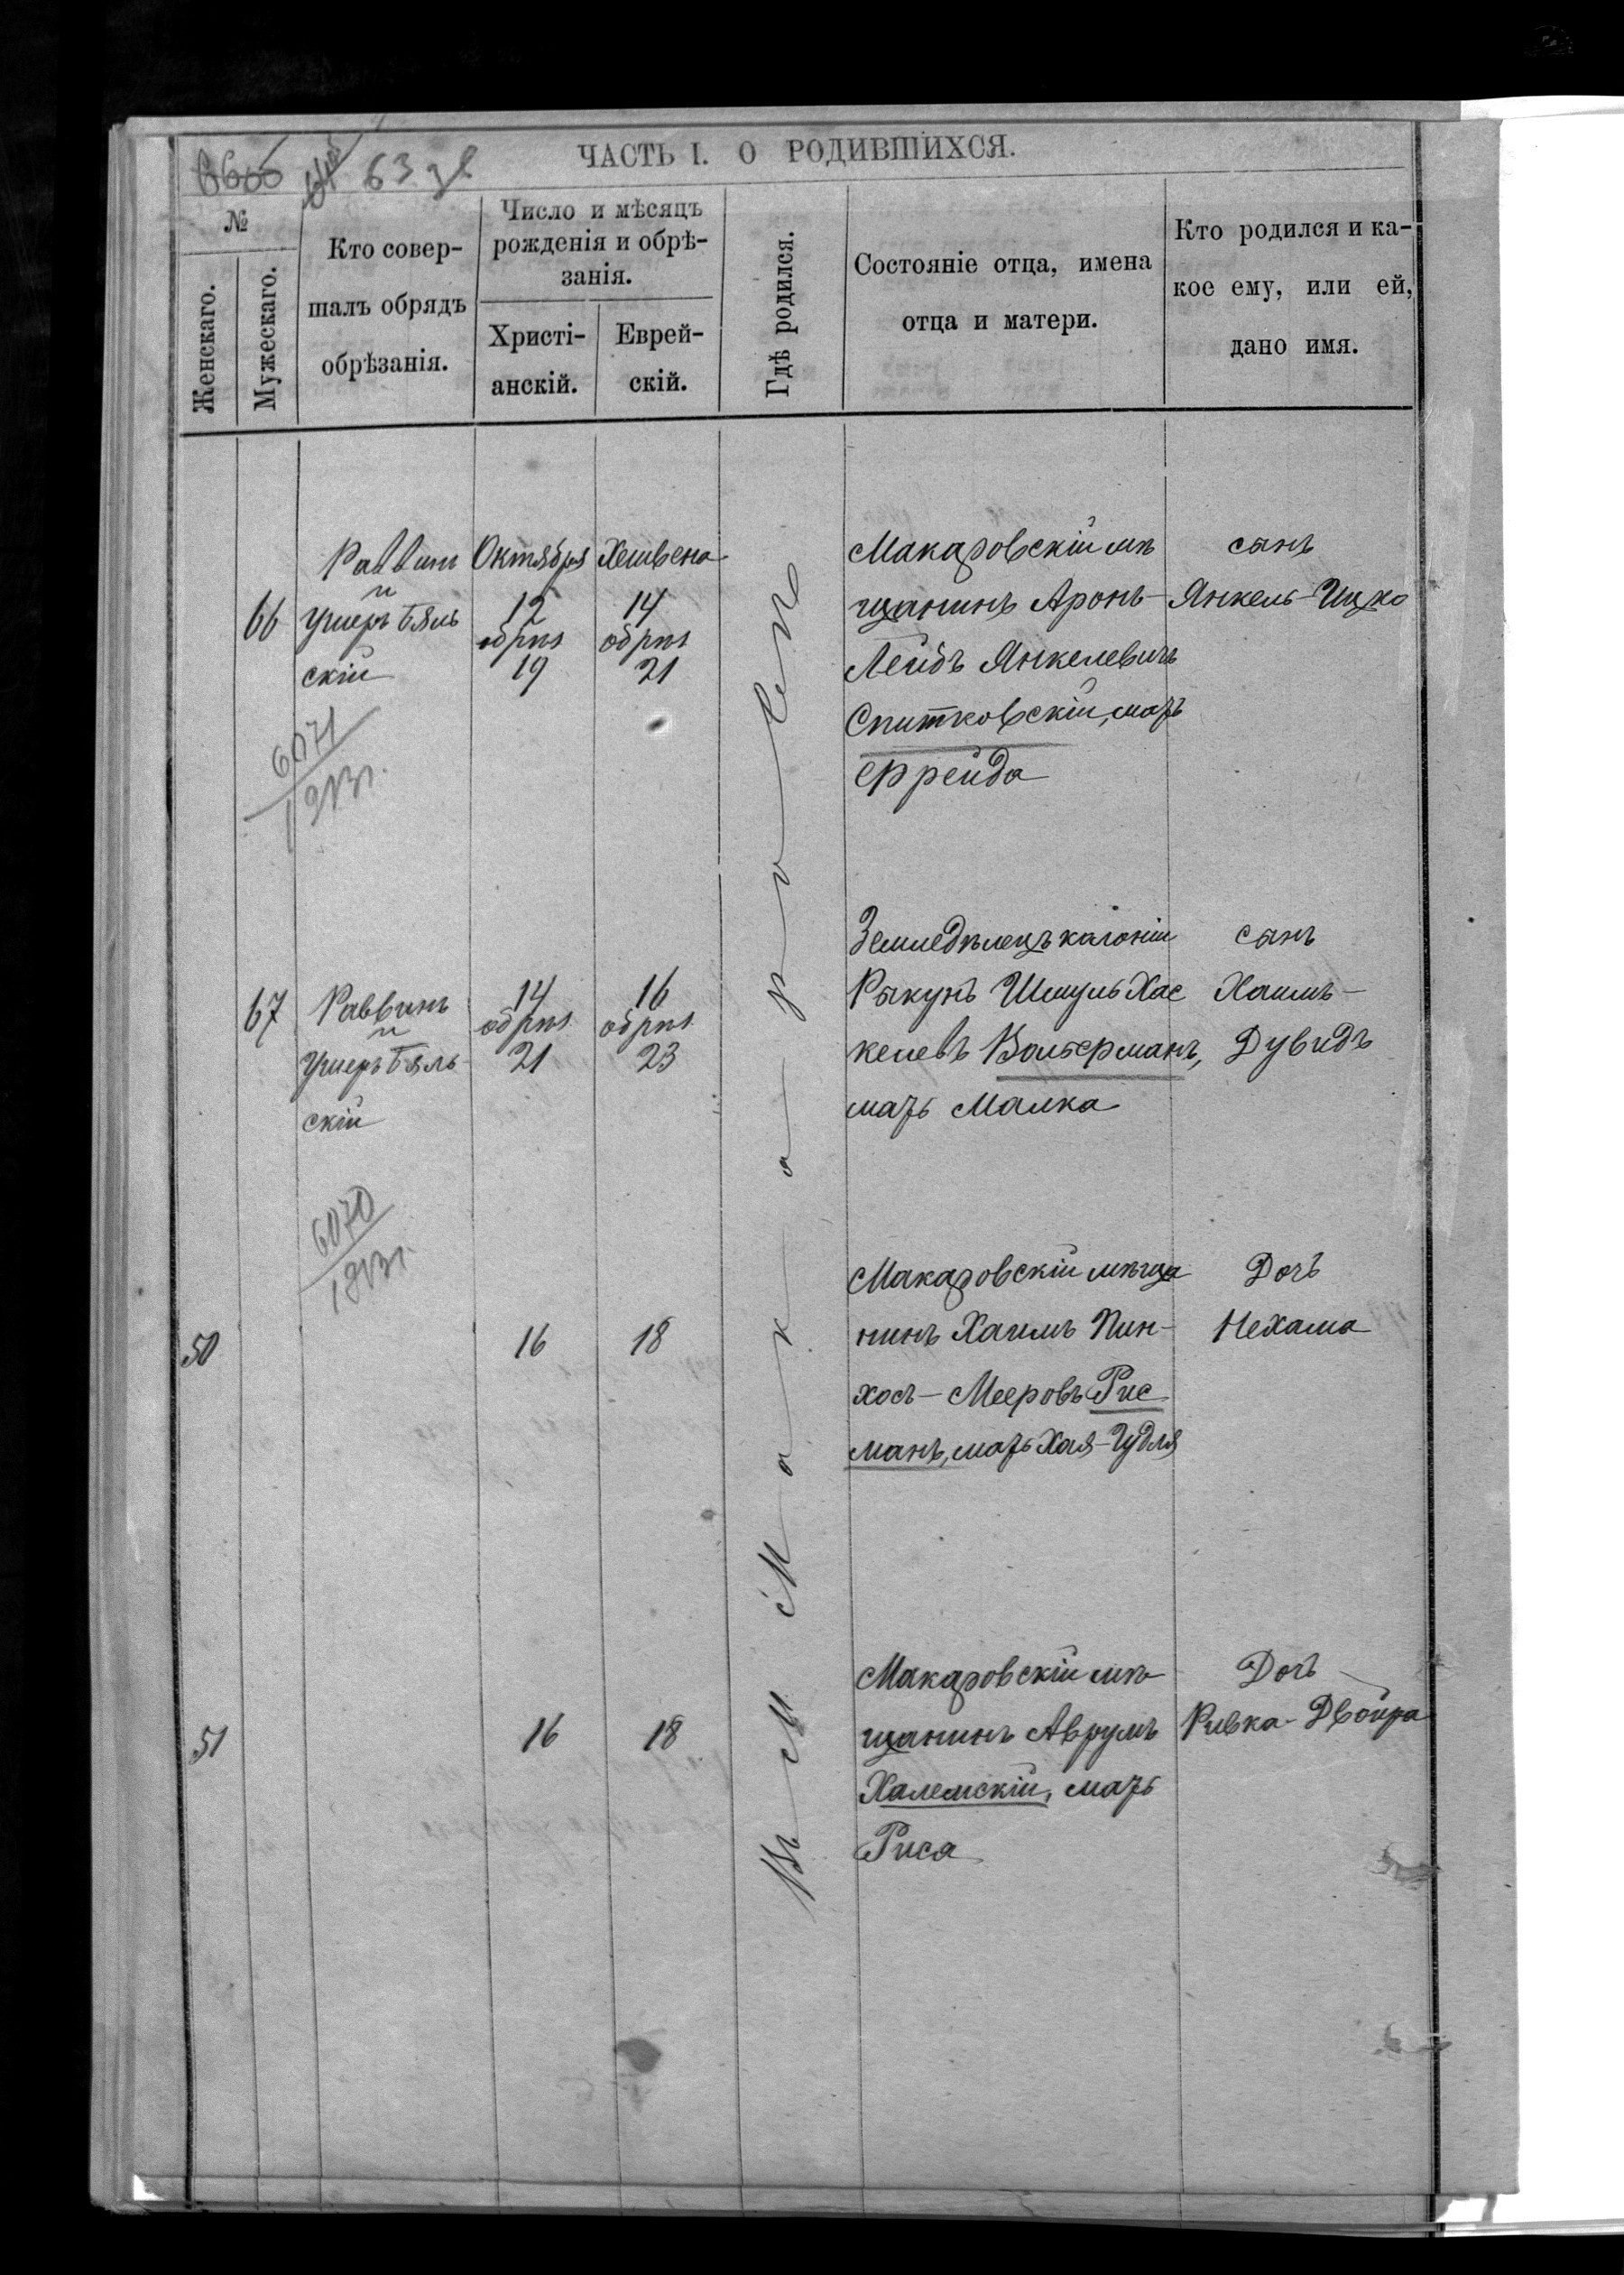 ЧАСТЬ I. О РОДИВШИХСЯ.
63
№
Женскаго.
Мужескаго.
Кто совер-
шалъ обрядъ
обрѣзанія.
Число и мѣсяцъ
рожденія и обрѣ-
занія.
Христі-
анскій.
Еврей-
скій.
Гдѣ родился.
Состояніе отца, имена
отца и матери.
Кто родился и ка-
кое ему, или ей,
дано имя.
Въ м Макаровѣ
66
Раввинъ
и
Ушеръ Бяль
скій
Октября
12
обрѣз
19
Хешвена
14
обрѣз
21
Макаровскій мѣ
щанинъ Аронъ-
Лейбъ Янкелевичъ
Спитковскій, мать
Фрейда
сынъ
Янкель-Ицко
6071
1913г.
67
Раввинъ
и
Ушеръ Бяль-
скій
14
обрѣз
21
16
обрѣз
23
Земледѣлецъ калоніи
Рыкунъ Шмуль Хас
келевъ Вольферманъ,
мать Малка
сынъ
Хаимъ-
Дувидъ
6070
1913г.
50
16
18
Макаровскій мѣща
нинъ Хаимъ Пин-
хосъ-Мееровъ Рис
манъ, мать Хая-Чудля
Дочь
Нехама
51
16
18
Макаровскій мѣ-
щанинъ Аврумъ
Халемскій, мать
Риса
Дочь
Ривка-Двойра